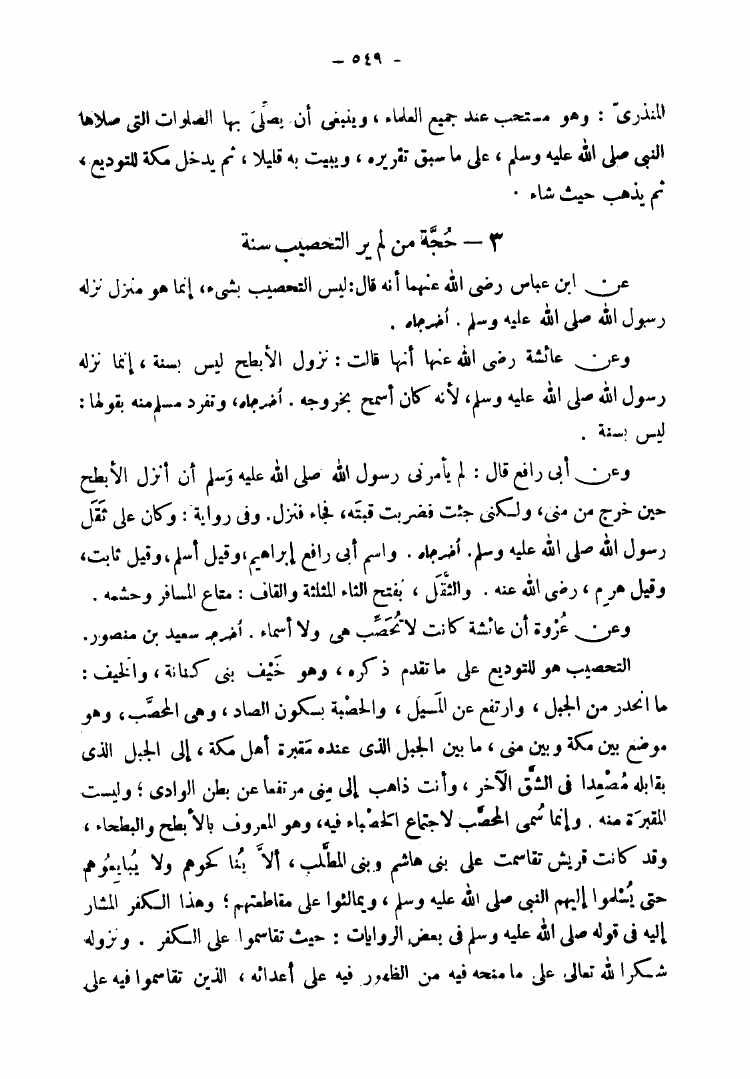 – ٥٤٩ –
المنذرىّ : وهو مستحب عند جميع العلماء ، وينبغى أن يصلِّىَ بها الصلوات التى صلاها
النبى صلى الله عليه وسلم ، على ما سبق تقريره ، ويبيت به قليلا ، ثم يدخل مكة للتوديع ،
ثم يذهب حيث شاء .
٣ – حُجَّة من لم ير التحصيب سنة
عن ابن عباس رضى الله عنهما أنه قال: ليس التحصيب بشىء، إنما هو منزل نزله
رسول الله صلى الله عليه وسلم . أخرجاه .
وعن عائشة رضى الله عنها أنها قالت : نزول الأبطح ليس بسنة ، إنما نزله
رسول الله صلى الله عليه وسلم، لأنه كان أسمح بخروجه . أخرجاه، وتفرد مسلم منه بقولها :
ليس بسنة .
وعن أبى رافع قال : لم يأمرنى رسول الله صلى الله عليه وَسلم أن أنزل الأبطح
حين خرج من منى، ولكنى جئت فضربت قبتَه، فجاء فنزل. وفى رواية : وكان على ثَقَل
رسول الله صلى الله عليه وسلم. أخرجاه . واسم أبى رافع إبراهيم، وقيل أسلم، وقيل ثابت،
وقيل هرم ، رضى الله عنه . والثَّقَل ، بفتح الثاء المثلثة والقاف : متاع المسافر وحشمه .
وعن عُرْوة أن عائشة كانت لا تُحَصِّب هى ولا أسماء . أخرجه سعيد بن منصور.
التحصيب هو للتوديع على ما تقدم ذكره ، وهو خَيْف بنى كنانة ، والخيف :
ما انحدر من الجبل ، وارتفع عن المَسيل ، والحصْبة بسكون الصاد ، وهى المحصَّب، وهو
موضع بين مكة وبين منى ، ما بين الجبل الذى عنده مَقبرة أهل مكة ، إلى الجبل الذى
يقابله مُصْعِدا فى الشَّق الآخر ، وأنت ذاهب إلى مِنى مرتفعا عن بطن الوادى ؛ وليست
المقبرَة منه . وإنما سُمى المحصَّب لاجتماع الحَصْباء فيه، وهو المعروف بالأبطح والبطحاء ،
وقد كانت قريش تقاسمت على بنى هاشم وبنى المطَّلب ، ألاَّ يُنا كحوهم ولا يُبايعُوهم
حتى يُسْلموا إليهم النبى صلى الله عليه وسلم ، ويمالئوا على مقاطعتهم ؛ وهذا الكفر المشار
إليه فى قوله صلى الله عليه وسلم فى بعض الروايات : حيث تقاسموا على الكفر . ونزوله
شكرا لله تعالى على ما منحه فيه من الظهور فيه على أعدائه ، الذين تقاسموا فيه على